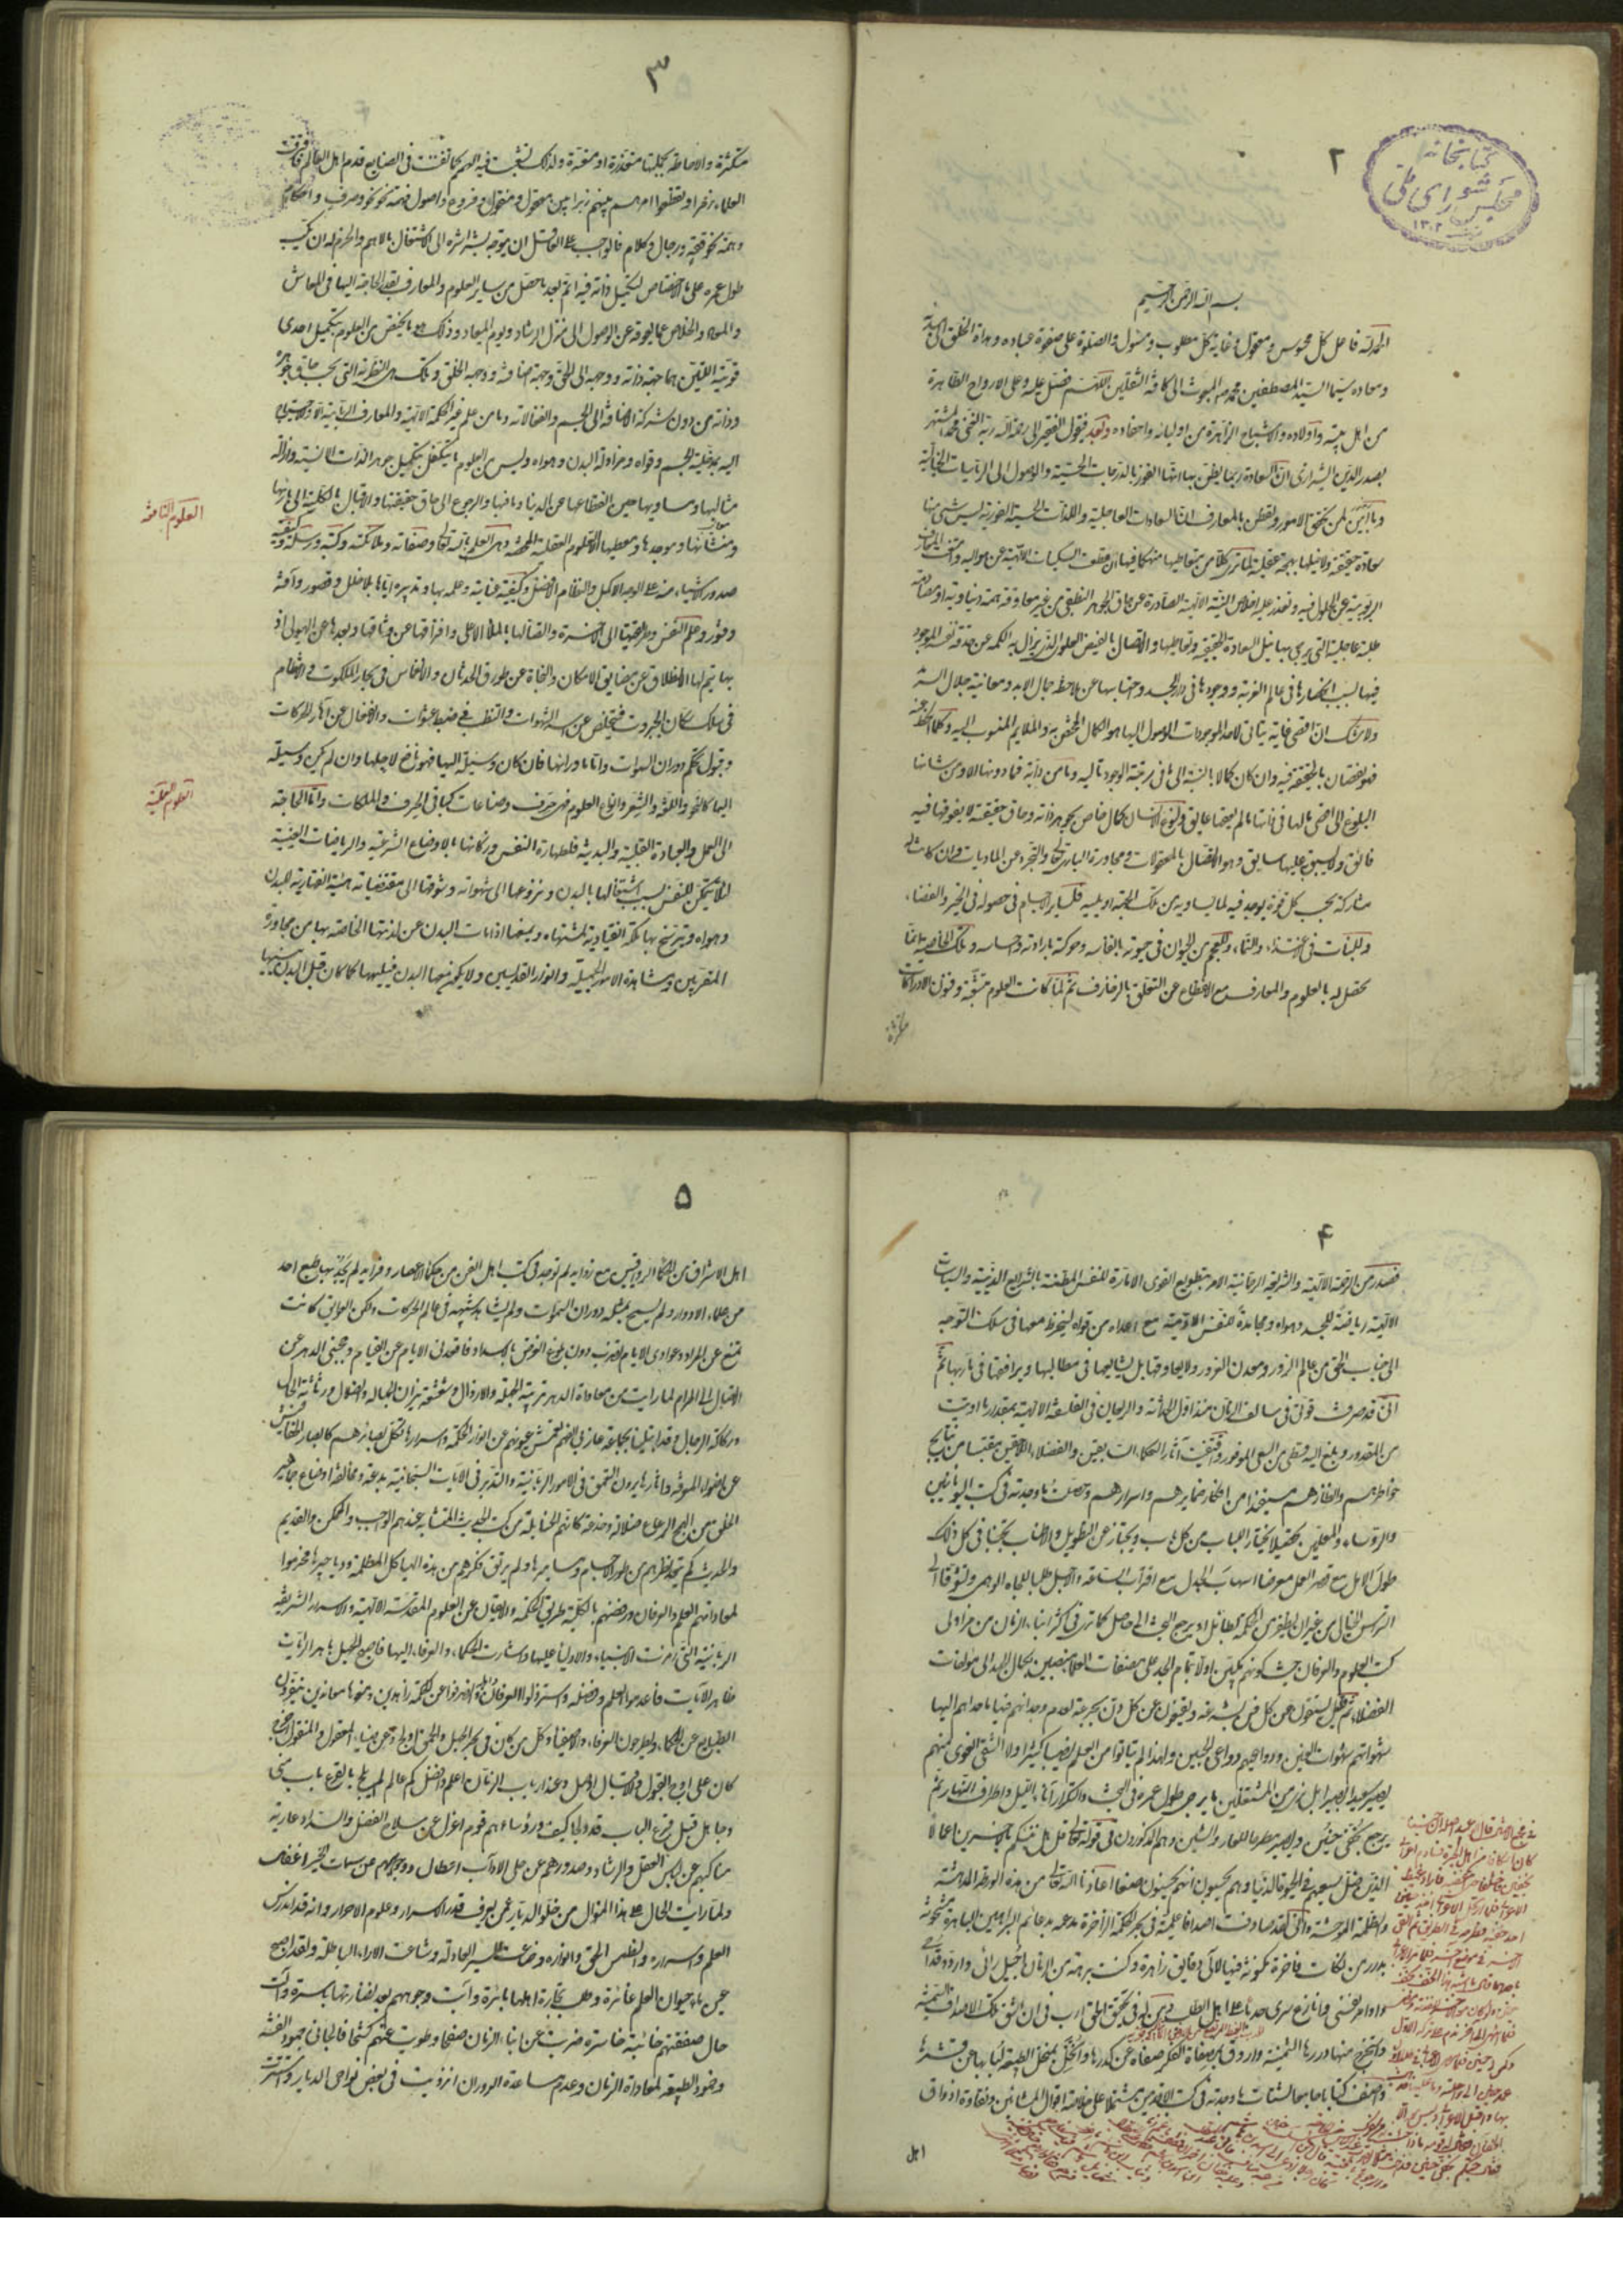 ٢
كتابخانه
مجلس شورای ملی
١٣٠٢
بسم الله الرحمن الرحيم
الحمد لله فاعل كل محسوس ومعقول وغاية كل مطلوب ومسئول والصلوة على صفوة عباده وهداة الخلق الى مبدئه
ومعاده سيما السيد المصطفين محمد المبعوث الى كافة الثقلين اللهم فصل عليه وعلى الارواح الطاهرة
من اهل بيته واولاده والاشباح الزاهرة من اوليائه واحفاده وبعد فيقول الفقير الى رحمة ربه الغنى محمد المشتهر
بصدر الدين الشيرازى ان السعادة ربما يظن بها انها الفوز بالدرجات الحسية والوصول الى الرياسات الخيالية
وما ابين لمن تحقق الامور وتفطن بالمعارف ان السعادات العاجلية واللذات الحسية الفورية ليس شئ منها
سعادة حقيقية ولا ينيلها بهجة عقلية لما ترى كلا من متعاطيها منهمكا فيها انقطعت السكينات الالهية عن حواليه وامتنعت المعارف
الربوبية عن الحلول فيه وتعذر عليه اخلاص النية الالهية الصادرة عن حاق الجوهر النطقى من غير معاوقة همة دنياوية او مصادمة
طلبة عاجلية التى يرجى بها نيل السعادة الحقيقية وتعاطيها والاتصال بالفيض العلوى الذى يزال به الكمه عن حدقة نفسه الموجود
فيها بسبب انحصارها فى عالم الغربة ووجودها فى دار الجسد واحتباسها عن ملاحظة جمال الابد ومعاينة جلال السرمد
ولا شك ان اقصى غاية يتاتى لاحد الموجودات الوصول اليها هو الكمال المختص به والملايم المنسوب اليه وكلما انحط عنه
فهو نقصان بالحقيقة فيه وان كان كمالا بالنسبة الى ما فى مرتبة الوجود تاليه وما من دابة فما دونها الا ومن شانها
البلوغ الى اقصى ما لها فى ذاتها ما لم يعقها عايق ولنوع الانسان كمال خاص لجوهر ذاته وحاق حقيقته لا يفوقها فيه
فائق ولا يسبق به عليها سابق وهو الاتصال بالمعقولات ومجاورة البارى تعالى والتجرد عن الماديات وان كانت له
مشاركة بحسب كل قوة يوجد فيه لما يساويه من تلك الجهة او يليه فلسائر الاجسام فى حصوله فى الحيز والفضاء
وللنبات فى الاغتذاء والنماء وللعجم من الحيوان فى حيوته بانفاسه وحركته بارادته واحساسه وتلك الخاصية انما
تحصل له بالعلوم والمعارف مع الانقطاع عن التعلق بالزخارف ثم لما كانت العلوم متشعبة وفنون الادراكات
متكثرة
٣
متكثرة والاحاطة بجملتها متعذرة او متعسرة ولذلك تشعبت فيه الهمم كما تفننت فى الصنايع قدم اهل العالم فافترقت
العلماء زمرا وتقطعوا امرهم بينهم زبرا بين معقول ومنقول وفروع واصول فهمة نحو نحو وصرف واحكام
وهمة نحو فقه ورجال وكلام فالواجب على العاقل ان يتوجه بشراشره الى الاشتغال بالاهم والحزم له ان يكب
طول عمره على ما الاختصاص لتكميل ذاته فيه اتم بعد ما حصل من ساير العلوم والمعارف بقدر الحاجة اليها فى المعاش
والمعاد والخلاص عما يعوقه عن الوصول الى منزل الرشاد ويوم الميعاد وذلك هو ما يختص من العلوم بتكميل احدى
قوتيه اللتين هما جهة ذاته ووجهه الى الحق وجهة اضافته ووجهه الى الخلق وتلك هى النظرية التى بحسب حاق جوهر
وذاته من دون شركة الاضافة الى الجسم وانفعالاته وما من علم غير الحكمة الالهية والمعارف الربانية الا والاحتياج
اليه بمدخلية الجسم وقواه ومزاولة البدن وهواه وليس من العلوم ما يتكفل بتكميل جوهر الذات الانسية وازالة
مثالبها ومساويها حين انقطاعها عن الدنيا وما فيها والرجوع الى حاق حقيقتها والاقبال بالكلية الى باريها
العلوم النافعة
ومنشئها وموجدها ومعطيها الا العلوم العقلية المحضة وهى العلم بالله تعالى وصفاته وملائكته وكتبه ورسله وكيفية
صدور الاشياء منه على الوجه الاكمل والنظام الافضل وكيفية عنايته وعلمه بها وتدبيره اياها بلا خلل وقصور وآفة
وفتور وعلم النفس وطريقتها الى الاخرة واتصالها بالملأ الاعلى وافتراقها عن وثاقها وبعدها عن الهيولى اذ
بها يتم لها الانطلاق عن مضايق الامكان والنجاة عن طوارق الحدثان والانغماس فى بحار الملكوت والانتظام
فى سلك سكان الجبروت فيتخلص عن اسر الشهوات والتقلب فى خبط عشوات والانفعال عن آثار الحركات
وقبول تحكم دوران السموات واما ما وراءها فان كان وسيلة اليها فهو نافع لاجلها وان لم يكن وسيلة
العلوم العقلية
اليها كالنحو واللغة والشعر وانواع العلوم فهى حرف وصناعات كباقى الحرف والملكات واما الحاجة
الى العمل والعبادة القلبية والبدنية فلطهارة النفس وزكائها بالاوضاع الشرعية والرياضات البدنية
لئلا يتمكن للنفس بسبب اشتغالها بالبدن ونزوعها الى شهواته وشوقها الى مقتضياته هيئة انقهارية للبدن
وهواه وترسخ بها ملكة انقيادية لمشتهاه وتمنعها اذا مات البدن عن لذتها الخاصة بها من مجاورة
المقربين ومشاهدة الامور الجميلة وانوار القديسين ولا يكون معها البدن فيلهيها كما كان قبل البدن ينسيها
٤
فصدر من الرحمة الالهية والشريعة الرحمانية الامر بتطويع القوى الامارة للنفس المطمئنة بالشرايع الدينية والسياسات
الالهية رياضة للجسد وهواه ومجاهدة للنفس الآدمية مع اعداءه من قواه لينخرط معها فى سلك التوجه
الى جناب الحق من عالم الزور ومعدن الغرور ولا يعاوقها بل يشايعها فى مطالبها ويرافقها فى مآربها ثم
انى قد صرفت قوتى فى سالف الزمان منذ اول الحداثة والريعان فى الفلسفة الالهية بمقدار ما اوتيت
من المقدور وبلغ اليه قسطى من السعى الموفور واقتفيت آثار الحكماء السابقين والفضلاء اللاحقين مقتبسا من نتايج
خواطرهم وانظارهم مستفيدا من ابكار ضمايرهم واسرارهم وحصلت ما وجدته فى كتب اليونانيين
والرؤساء المعلمين تحصيلا يختار اللباب من كل باب ويجتاز عن التطويل والاطناب مجتنبا فى كل ذلك
طول الامل مع قصر العمل معرضا عن اسهاب الجدل مع اقتراب الساعة والاجل طلبا للجاه الوهمى وتشوقا الى
الترؤس الخيالى من غير ان يظفر من الحكمة بطائل او يرجع البحث الى حاصل كما ترى فى اكثر ابناء الزمان من مزاولى
كتب العلوم والعرفان حيث كونهم منكبين اولا بتمام الجد على مصنفات العلماء منصبين بكمال الجهد الى مؤلفات
الفضلاء ثم عن قليل يشبعون عن كل فن بسرعة ويقنعون عن كل دن بجرعة لعدم وجدانهم فيها ما حداهم اليها
شهواتهم شهوات العنين ودواعيهم دواعى الجنين ولهذا لم ينالوا من العلم نصيبا كثيرا ولا الشقى الغوى منهم
يصير سعيدا بصيرا بل ترى من المشتغلين ما يرجى طول عمره فى البحث والتكرار آناء الليل واطراف النهار ثم
يرجع بخفى حنين ويصير مطرحا للعار والشين وهم المذكورون فى قوله تعالى قل هل ننبئكم بالاخسرين اعمالا
الذين ضل سعيهم فى الحيوة الدنيا وهم يحسبون انهم يحسنون صنعا اعاذنا الله تعالى من هذه الورطة المدهشة
والظلمة الموحشة وانى لقد صادفت اصدافا علمية فى بحر الحكمة الزاخرة مدعمة بدعائم البراهين الباهرة مشحونة
بدرر من نكات فاخرة مكنونة فيها لآلى دقايق زاهرة وكنت برهة من الزمان اجيل رائى واردد قداحى
واوامر نفسى وانازع سرى حدبا على اهل الطلب ومن له فى تحقيق الحق ارب فى ان اشق تلك الاصداف السمينة
واستخرج منها دررها الثمينة واروق بمصفاة الفكر صفاها عن كدرها وانخل بمنخل الطبيعة لبابها عن قشرها
واصنف كتابا جامعا لشتات ما وجدته فى كتب الاقدمين مشتملا على خلاصة اقوال المشائين ونقاوة اذواق
اهل
٥
اهل الاشراق من الحكماء الرواقيين مع زوايد لم توجد فى كتب اهل الفن من حكماء الاعصار وفرايد لم يجد بها طبع احد
من علماء الادوار ولم يسمح بمثله دوران السموات ولم يشاهد شبهه فى عالم الحركات ولكن العوايق كانت
تمنع عن المراد وعوادى الايام تضرب دون بلوغ الغرض بالاسداد فاقعدنى الايام عن القيام وحجبنى الدهر عن
الاتصال الى المرام لما رايت من معاداة الدهر بتربية الجهلة والارذال وشعشعة نيران الجهالة والضلال ورثاثة الحال
وركاكة الرجال وقد ابتلينا بجماعة عازبى الفهم تعمش عيونهم عن انوار الحكمة واسرارها تكل بصائرهم كابصار الخفافيش
عن اضواء المعرفة وآثارها يرون التعمق فى الامور الربانية والتدبر فى الآيات السبحانية بدعة ومخالفة اوضاع جماهير
الخلق من الهمج الرعاع ضلالة وخدعة كانهم الحنابلة من كتب الحديث المتشابه عندهم الواجب والممكن والقديم
والحديث لم يتعد نظرهم عن طور الاجسام ومساميرها ولم يرتق فكرهم عن هذه الهياكل المظلمة ودياجيرها فحرموا
لمعاداتهم العلم والعرفان ورفضهم بالكلية طريق الحكمة والايقان عن العلوم المقدسة الالهية والاسرار الشريفة
الربانية التى رمزت الانبياء والاولياء عليها واشارت الحكماء والعرفاء اليها فاصبح الجهل باهر الرايات
ظاهر الآيات فاعدموا العلم وفضله واسترذلوا العرفان واهله وانصرفوا عن الحكمة زاهدين ومنعوها معاندين ينفرون
الطبايع عن الحكماء ويطرحون العرفاء والاصفياء وكل من كان فى بحر الجهل والحمق اولج وعن ضياء المعقول والمنقول اخرج
كان على اوج القبول والاقبال اوصل وعند ارباب الزمان اعلم وافضل كم عالم لم يلج بالقرع باب منى
وجاهل قبل قرع الباب قد ولجا كيف ورؤساءهم قوم اعزل عن سلاح الفضل والسداد عارية
مناكبهم عن لباس العقل والرشاد وصدورهم عن حلى الآداب اعطال ووجوههم عن سمات الخير اغفال
ولما رايت الحال على هذا المنوال من خلو الديار عمن يعرف قدر الاسرار وعلوم الاحرار وانه قد اندرس
العلم واسراره وانطمس الحق وانواره وضاعت السير العادلة وشاعت الآراء الباطلة ولقد اصبح
عين ماء حيوان العلم غائرة وظلت تجارة اهلها بائرة وآبت وجوههم بعد نضارتها باسرة وآلت
حال صفقتهم خائبة خاسرة ضربت عن ابناء الزمان صفحا وطويت عنهم كشحا فالجانى خمود الفطنة
وجمود الطبيعة لمعاداة الزمان وعدم مساعدة الدوران ان انزويت فى بعض نواحى الديار واستترت